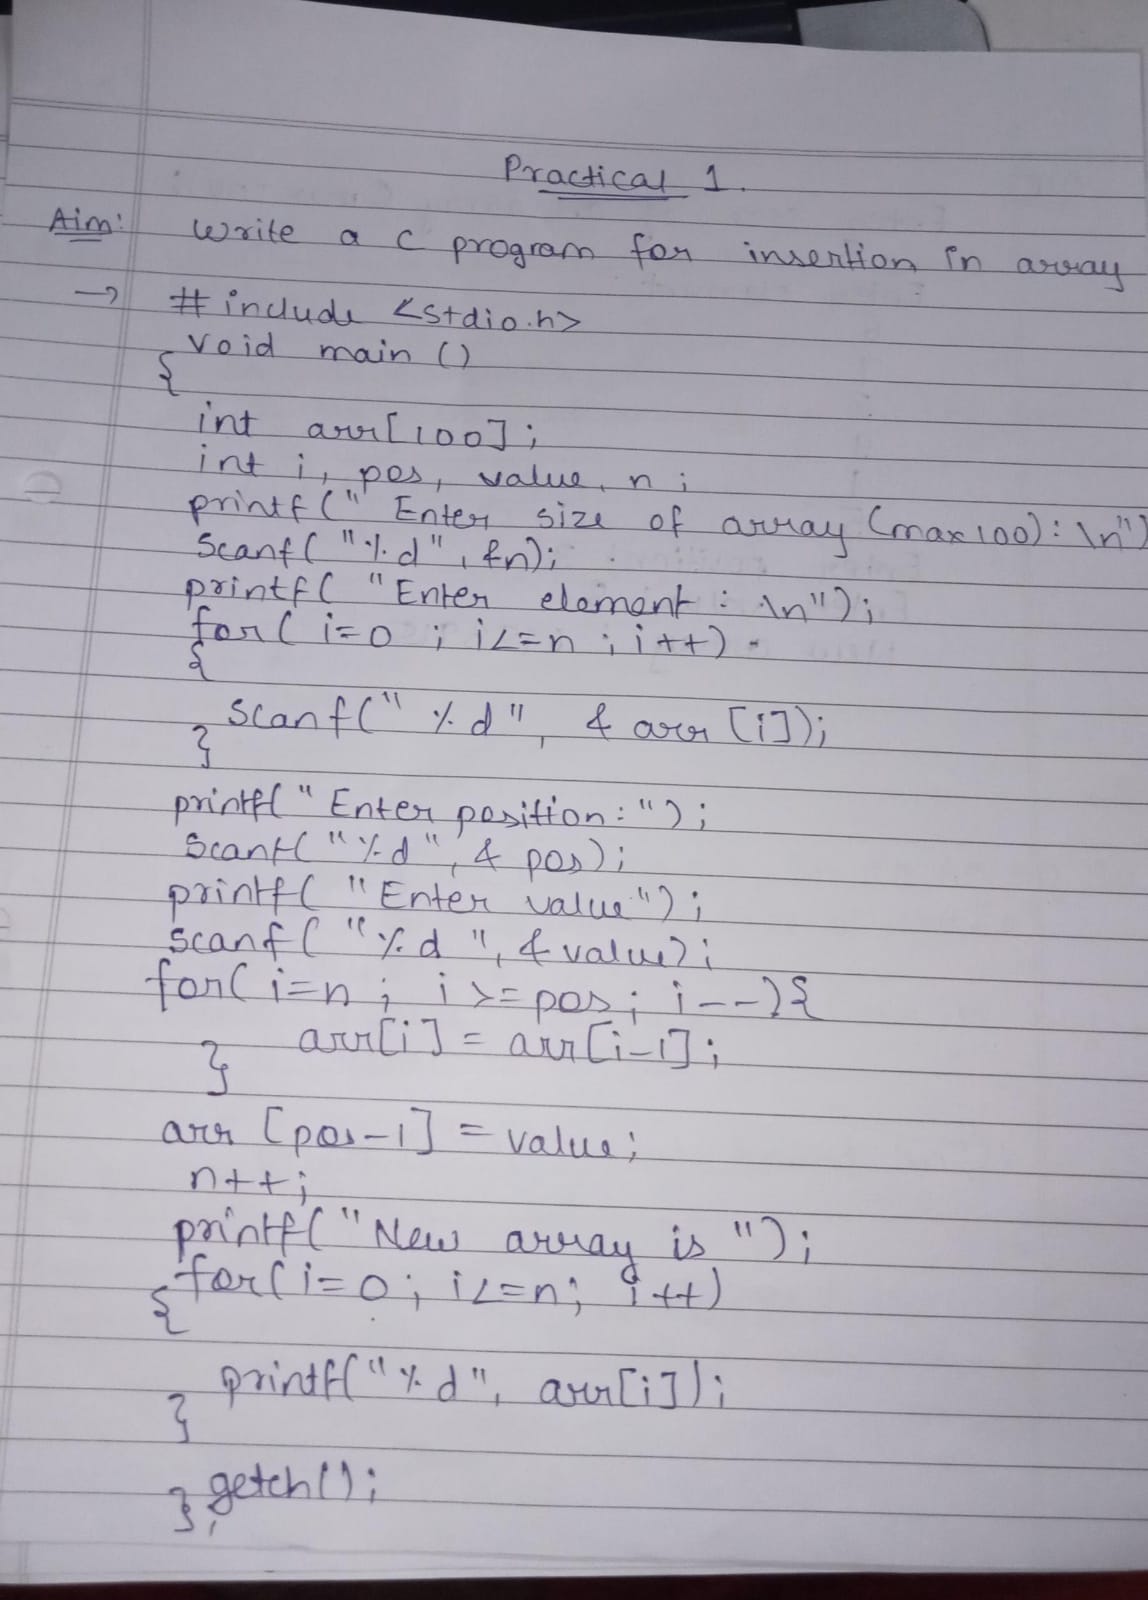 Practical 1.
Aim: Write a c program for insertion in array
→ # include <stdio.h>
void main ()
{
int arr[100];
int i, pos, value, n;
printf(" Enter size of array (max 100): \n")
Scanf( "%d", &n);
printf( "Enter element : \n");
for( i=0 ; i<=n ; i++)
{
scanf(" %d", & arr [i]);
}
printf( "Enter position:");
Scanf( "%d", & pos);
printf( "Enter value");
scanf( "%d ", & value);
for( i=n ; i >= pos; i--){
arr[i] = arr[i-1];
}
arr [pos-1] = value;
n++;
printf("New array is ");
for(i=0; i<=n; i++)
{
printf("%d", arr[i]);
}
getch();
};